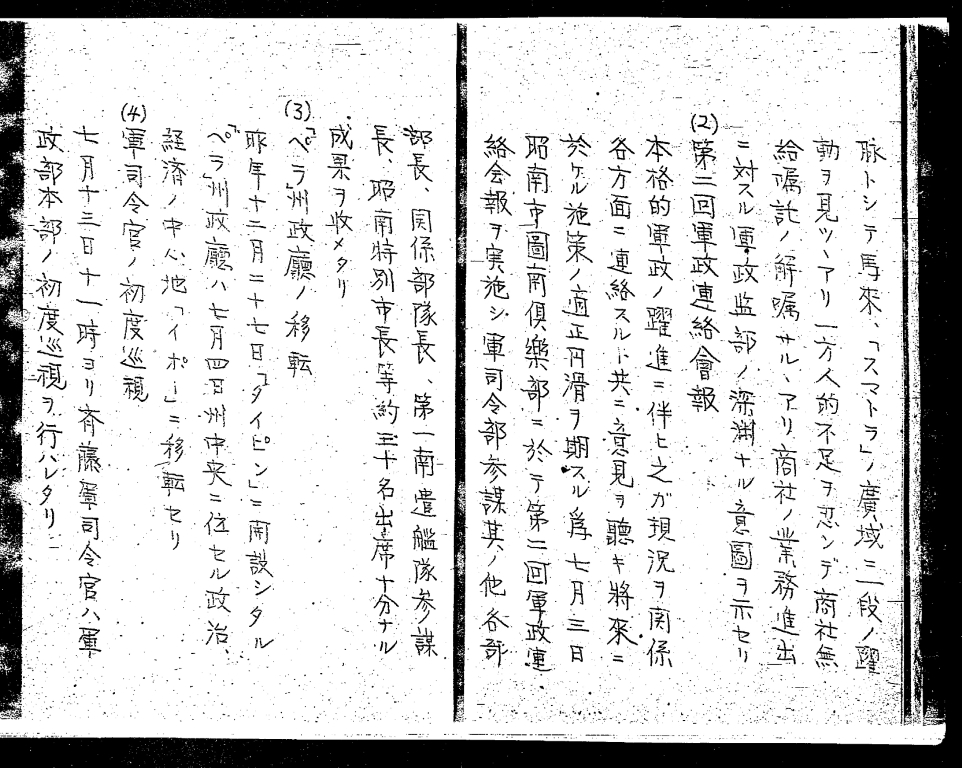 脉トシテ再來、「スマトラ」ノ廣域ニ一段ノ躍
動ヲ見ツヽアリ一方人的不足ヲ忍ンデ商社無
給囑託ノ解囑サルヽアリ商社ノ業務進出
ニ対スル軍政監部ノ深淵ナル意圖ヲ示セリ
(2)第二回軍政連絡會報
本格的軍政ノ躍進ニ伴ヒ之ガ現況ヲ関係
各方面ニ連絡スルト共ニ意見ヲ聽キ將來ニ
於ケル施策ノ適正円滑ヲ期スル爲七月三日
昭南市圖南倶樂部ニ於テ第二回軍政連
絡会報ヲ実施シ軍司令部参謀其ノ他各部
部長、関係部隊長、第一南遣艦隊参謀
長、昭南特別市長等約三十名出席十分ナル
成果ヲ收メタリ
(3)「ペラ」州政廳ノ移転
昨年十二月二十七日「タイピン」ニ開設シタル
「ペラ」州政廳ハ七月四日州中央ニ位セル政治、
経済ノ中心地「イポー」ニ移転セリ
(4)軍司令官ノ初度巡視
七月十三日十一時ヨリ斉藤軍司令官ハ軍
政部本部ノ初度巡視ヲ行ハレタリ